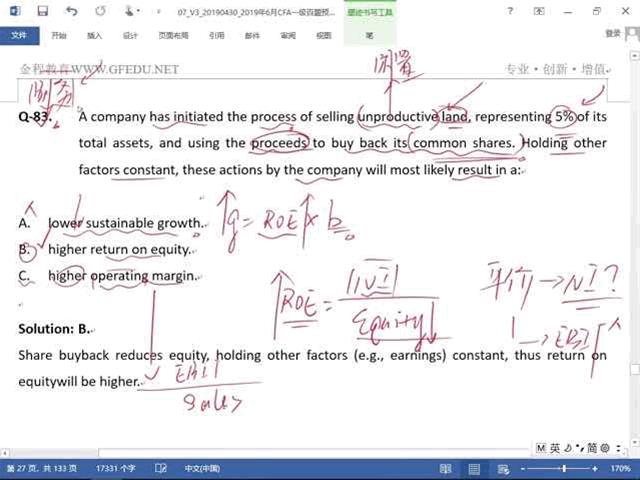 07_V3_20190430_2019年6月CFA一级百题预...
墨迹书写工具
登录
文件
开始
插入
设计
页面布局
引用
邮件
审阅
视图
笔
金程教育WWW.GFEDU.NET
专业·创新·增值
闲置
财务
Q-83. A company has initiated the process of selling unproductive land, representing 5% of its
total assets, and using the proceeds to buy back its common shares. Holding other
factors constant, these actions by the company will most likely result in a:
A. lower sustainable growth.
B. higher return on equity.
C. higher operating margin.
g = ROE × b
ROE = |NI| / Equity
平价 → NI?
→ EBI
Solution: B.
Share buyback reduces equity, holding other factors (e.g., earnings) constant, thus return on
equitywill be higher.
EBIT
Sales
第 27 页，共 133 页
17331 个字
中文(中国)
M 英 简
170%